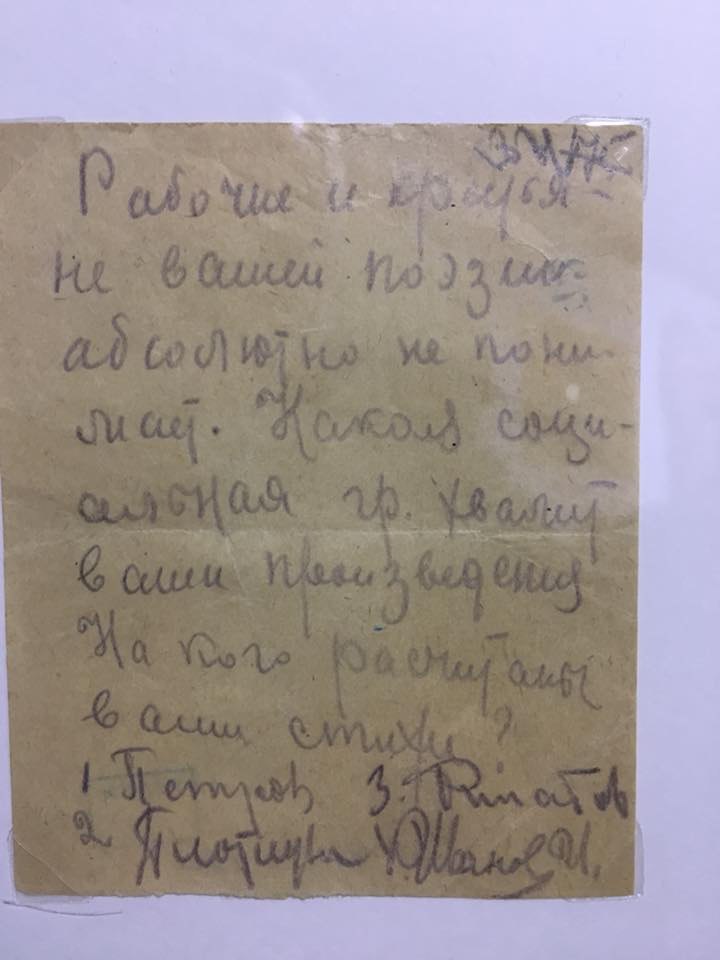 Рабочие и крестья-
не вашей поэзии
абсолютно не пони-
мают. Какая соци-
альная гр. хвалит
ваши произведения
На кого расчитаны
ваши стихи?
1 Петров 3.
2 Плотников Иванов И.